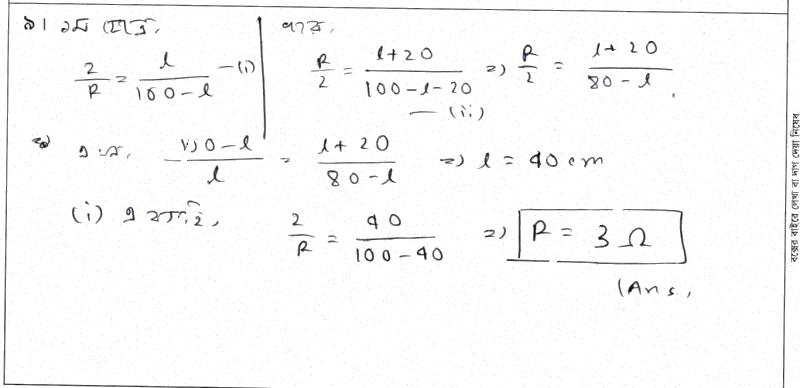 ৯। ১ম ক্ষেত্রে,
2/R = l/(100-l) —(i)
পরে,
R/2 = (l+20)/(100-l-20) ⇒ R/2 = (l+20)/(80-l)
—(ii)
(100-l)/l = (l+20)/(80-l) ⇒ l = 40 cm
(i)
2/R = 40/(100-40) ⇒ R = 3 Ω
(Ans.
বক্সের বাইরে লেখা বা দাগ দেয়া নিষেধ